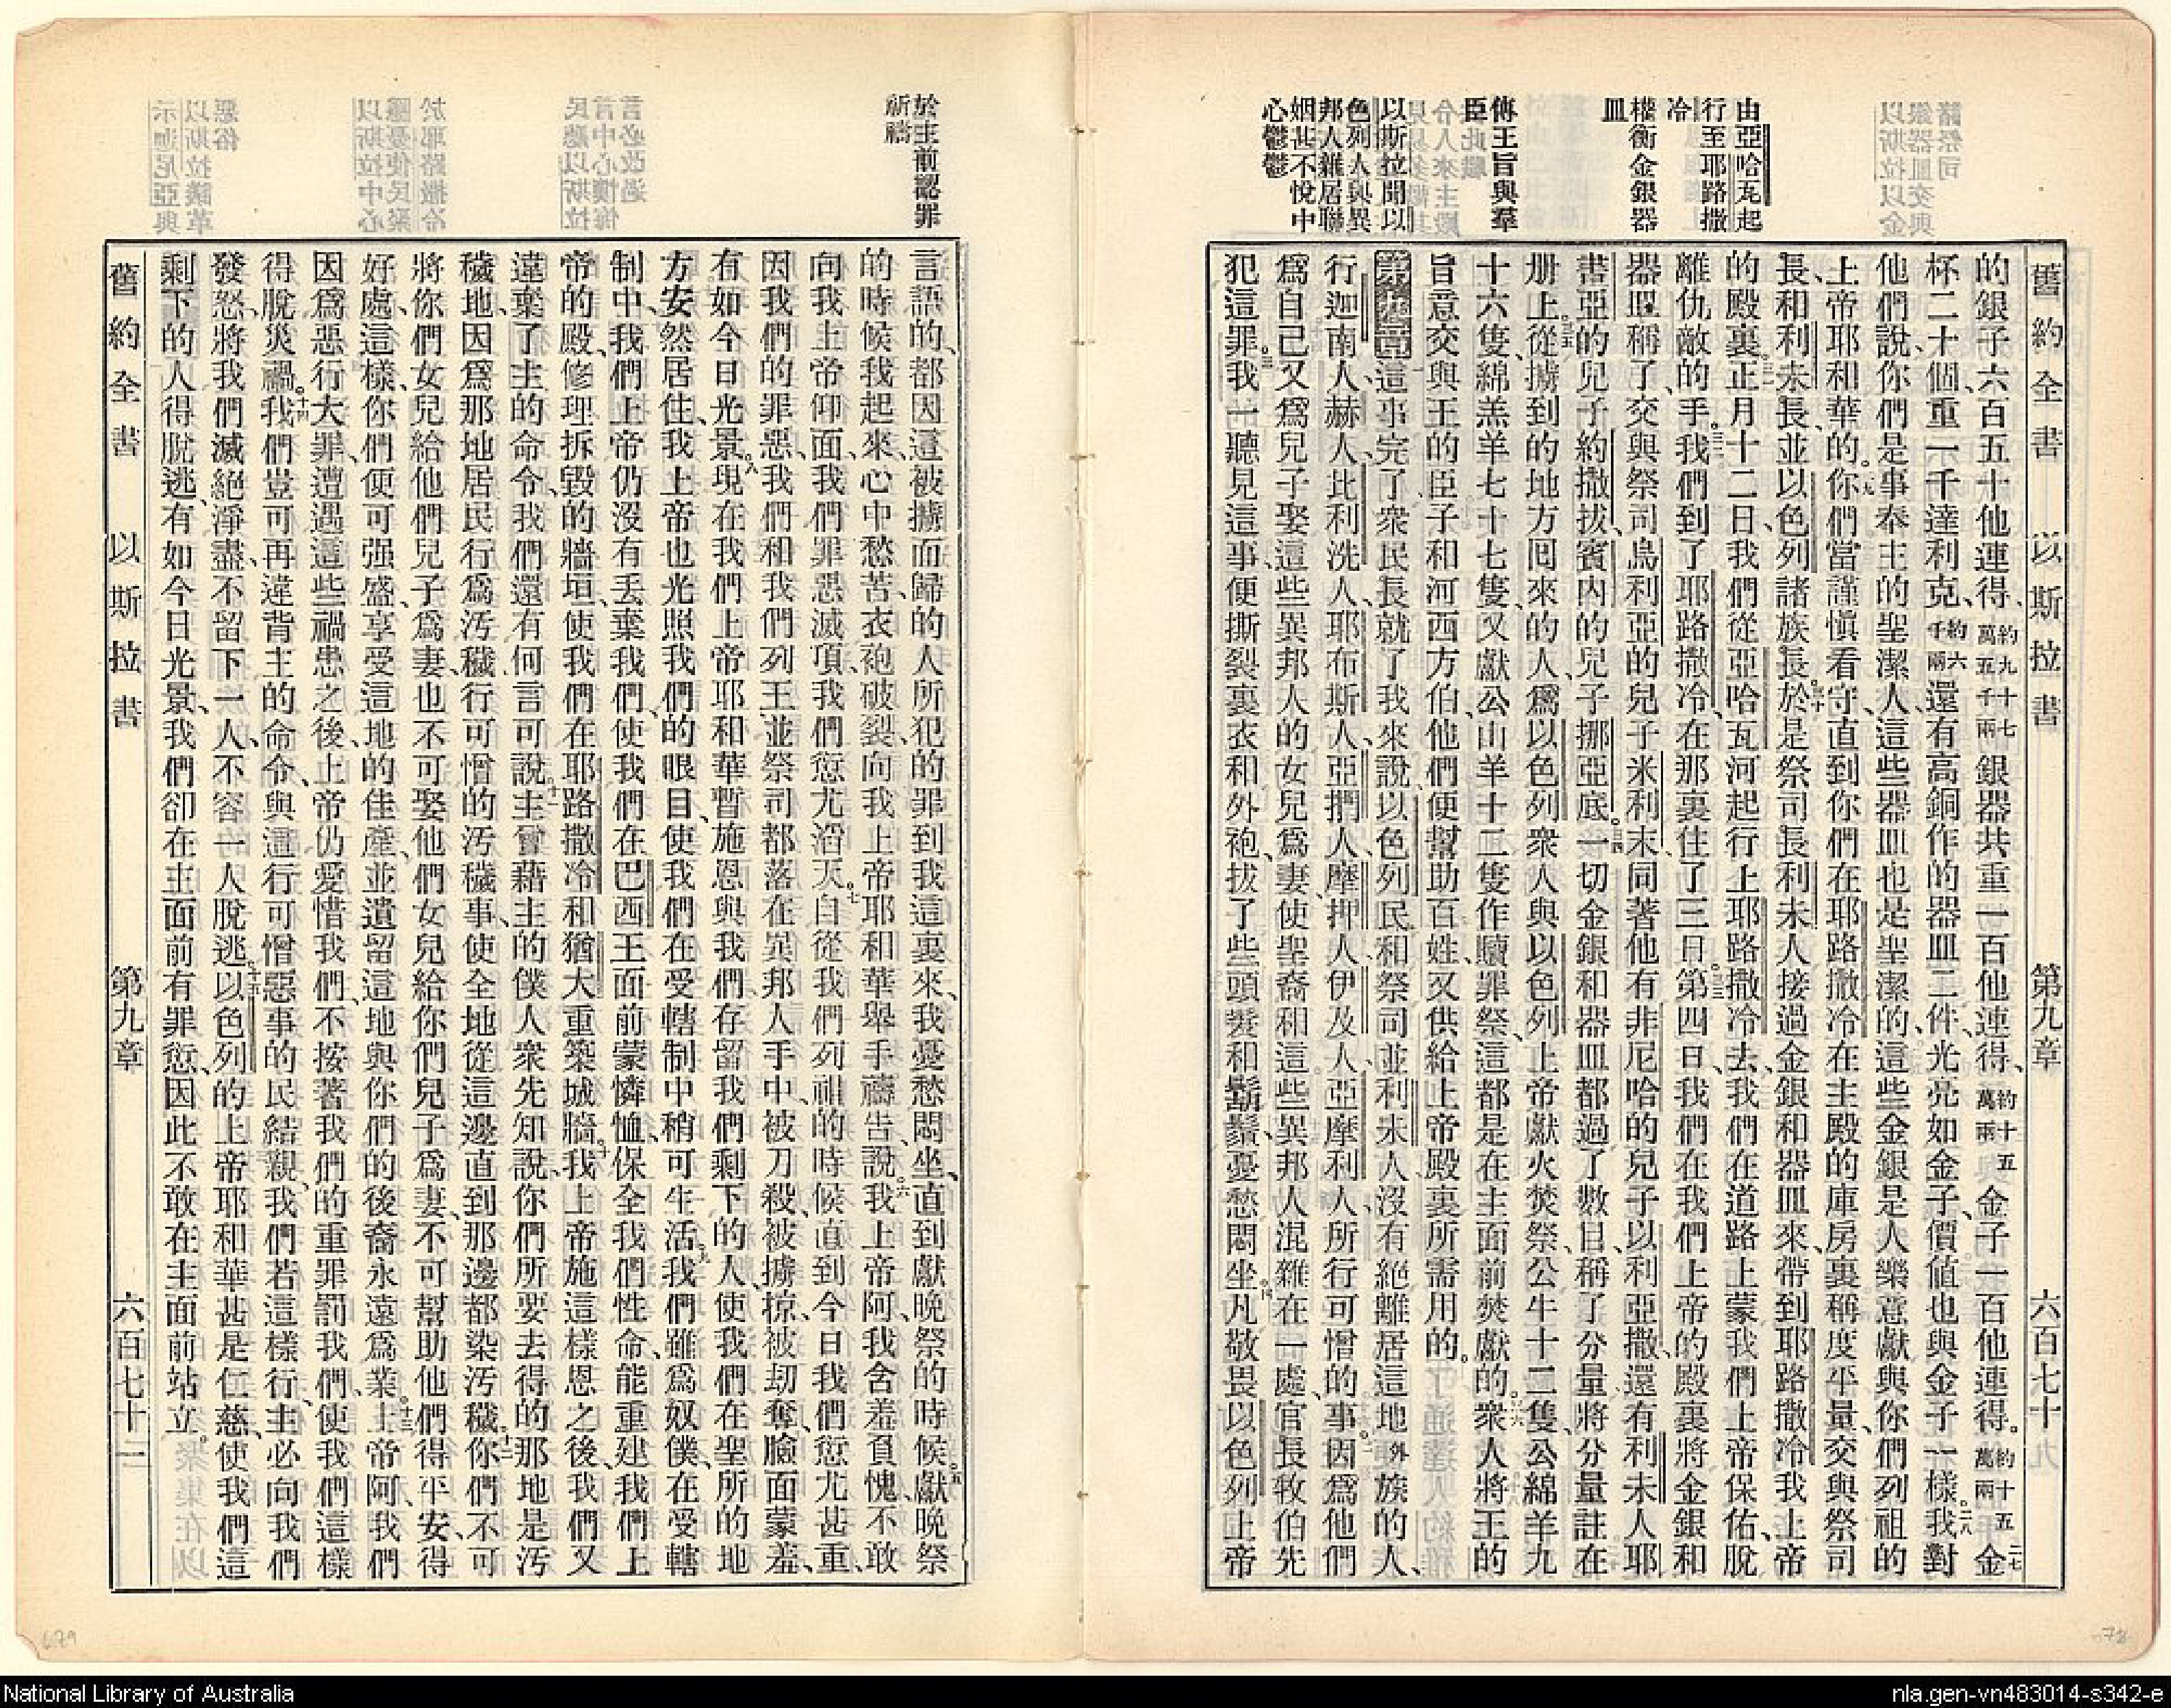 舊約全書 以斯拉書 第九章 六百七十
由亞哈瓦起
行至耶路撒
冷
權衡金銀器
皿
傳王旨與羣
臣
以斯拉聞以
色列人與異
邦人雜居聯
姻甚不悅中
心鬱鬱
的銀子六百五十他連得、約九十七萬五千兩銀器共重一百他連得、約十五萬兩金子一百他連得。約十五萬兩二七金
杯二十個、重一千達利克、約六千兩還有高銅作的器皿二件、光亮如金子、價值也與金子一樣。二八我對
他們說、你們是事奉主的聖潔人、這些器皿也是聖潔的、這些金銀是人樂意獻與你們列祖的
上帝耶和華的。二九你們當謹慎看守、直到你們在耶路撒冷在主殿的庫房裏、稱度平量、交與祭司
長和利未長、並以色列諸族長。三十於是祭司長利未人接過金銀和器皿來、帶到耶路撒冷我上帝
的殿裏。三一正月十二日、我們從亞哈瓦河起行、上耶路撒冷去、我們在道路上蒙我們上帝保佑、脫
離仇敵的手。三二我們到了耶路撒冷、在那裏住了三日。三三第四日、我們在我們上帝的殿裏將金銀和
器皿稱了、交與祭司烏利亞的兒子米利末、同著他有非尼哈的兒子以利亞撒、還有利未人耶
書亞的兒子約撒拔、賓內的兒子挪亞底。三四一切金銀和器皿都過了數目、稱了分量、將分量註在
册上。三五從擄到的地方囘來的人、爲以色列衆人與以色列上帝獻火焚祭、公牛十二隻、公綿羊九
十六隻、綿羔羊七十七隻、又獻公山羊十二隻作贖罪祭、這都是在主面前焚獻的。三六衆人將王的
旨意交與王的臣子和河西方伯、他們便幫助百姓、又供給上帝殿裏所需用的。
第九章 這事完了、衆民長就了我來說、以色列民和祭司並利未人、沒有絕離居這地外族的人、
行迦南人、赫人、比利洗人、耶布斯人、亞捫人、摩押人、伊及人、亞摩利人所行可憎的事。二因爲他們
爲自己又爲兒子娶這些異邦人的女兒爲妻、使聖裔和這些異邦人混雜在一處、官長牧伯先
犯這罪。三我一聽見這事、便撕裂裏衣和外袍、拔了些頭髮和鬍鬚、憂愁悶坐。四凡敬畏以色列上帝
於主前認罪
祈禱
言語的、都因這被擄而歸的人所犯的罪、到我這裏來、我憂愁悶坐、直到獻晚祭的時候。五獻晚祭
的時候、我起來、心中愁苦、衣袍破裂、向我上帝耶和華舉手禱告說、六我上帝阿、我含羞負愧、不敢
向我上帝仰面、我們罪惡滅頂、我們愆尤滔天。七自從我們列祖的時候、直到今日、我們愆尤甚重、
因我們的罪惡、我們和我們列王並祭司都落在異邦人手中、被刀殺、被擄掠、被刧奪、臉面蒙羞、
有如今日光景。八現在我們上帝耶和華暫施恩與我們、存留我們剩下的人、使我們在聖所的地
方安然居住、我上帝也光照我們的眼目、使我們在受轄制中稍可生活。九我們雖爲奴僕、在受轄
制中、我們上帝仍沒有丟棄我們、使我們在巴西王面前蒙憐恤、保全我們性命、能重建我們上
帝的殿、修理拆毀的牆垣、使我們在耶路撒冷和猶大重築城牆。十我上帝施這樣恩之後、我們又
違棄了主的命令、我們還有何言可說。十一主曾藉主的僕人衆先知說、你們所要去得的那地是汚
穢地、因爲那地居民行爲汚穢、行可憎的汚穢事、使全地從這邊直到那邊都染汚穢。十二你們不可
將你們女兒給他們兒子爲妻、也不可娶他們女兒給你們兒子爲妻、不可幫助他們得平安、得
好處、這樣你們便可强盛、享受這地的佳產、並遺留這地與你們的後裔永遠爲業。十三上帝阿、我們
因爲惡行大罪、遭遇這些禍患之後、上帝仍愛惜我們、不按著我們的重罪罰我們、使我們這樣
得脫災禍。十四我們豈可再違背主的命令、與這行可憎惡事的民結親、我們若這樣行、主必向我們
發怒、將我們滅絕淨盡、不留下一人、不容一人脫逃。十五以色列的上帝耶和華甚是仁慈、使我們這
剩下的人得脫逃、有如今日光景、我們卻在主面前有罪愆、因此不敢在主面前站立。
舊約全書 以斯拉書 第九章 六百七十一
679
678
National Library of Australia
nla.gen-vn483014-s342-e